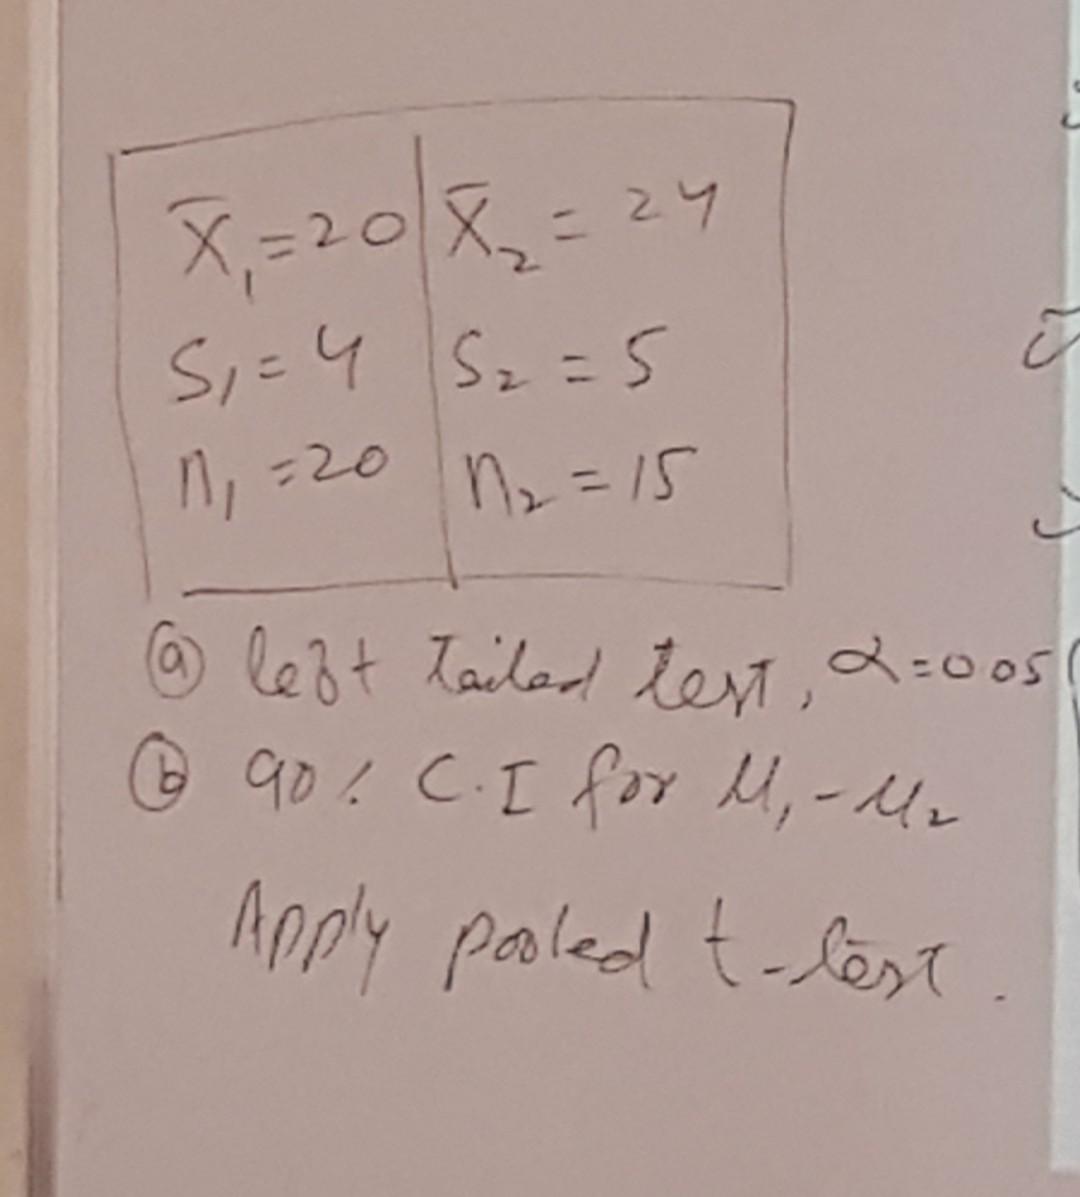 X̄₁=20 X̄₂ = 24
S₁=4 S₂ = 5
n₁=20 n₂=15
ⓐ left tailed test, α=0.05
ⓑ 90% C.I for μ₁-μ₂
Apply pooled t-test.